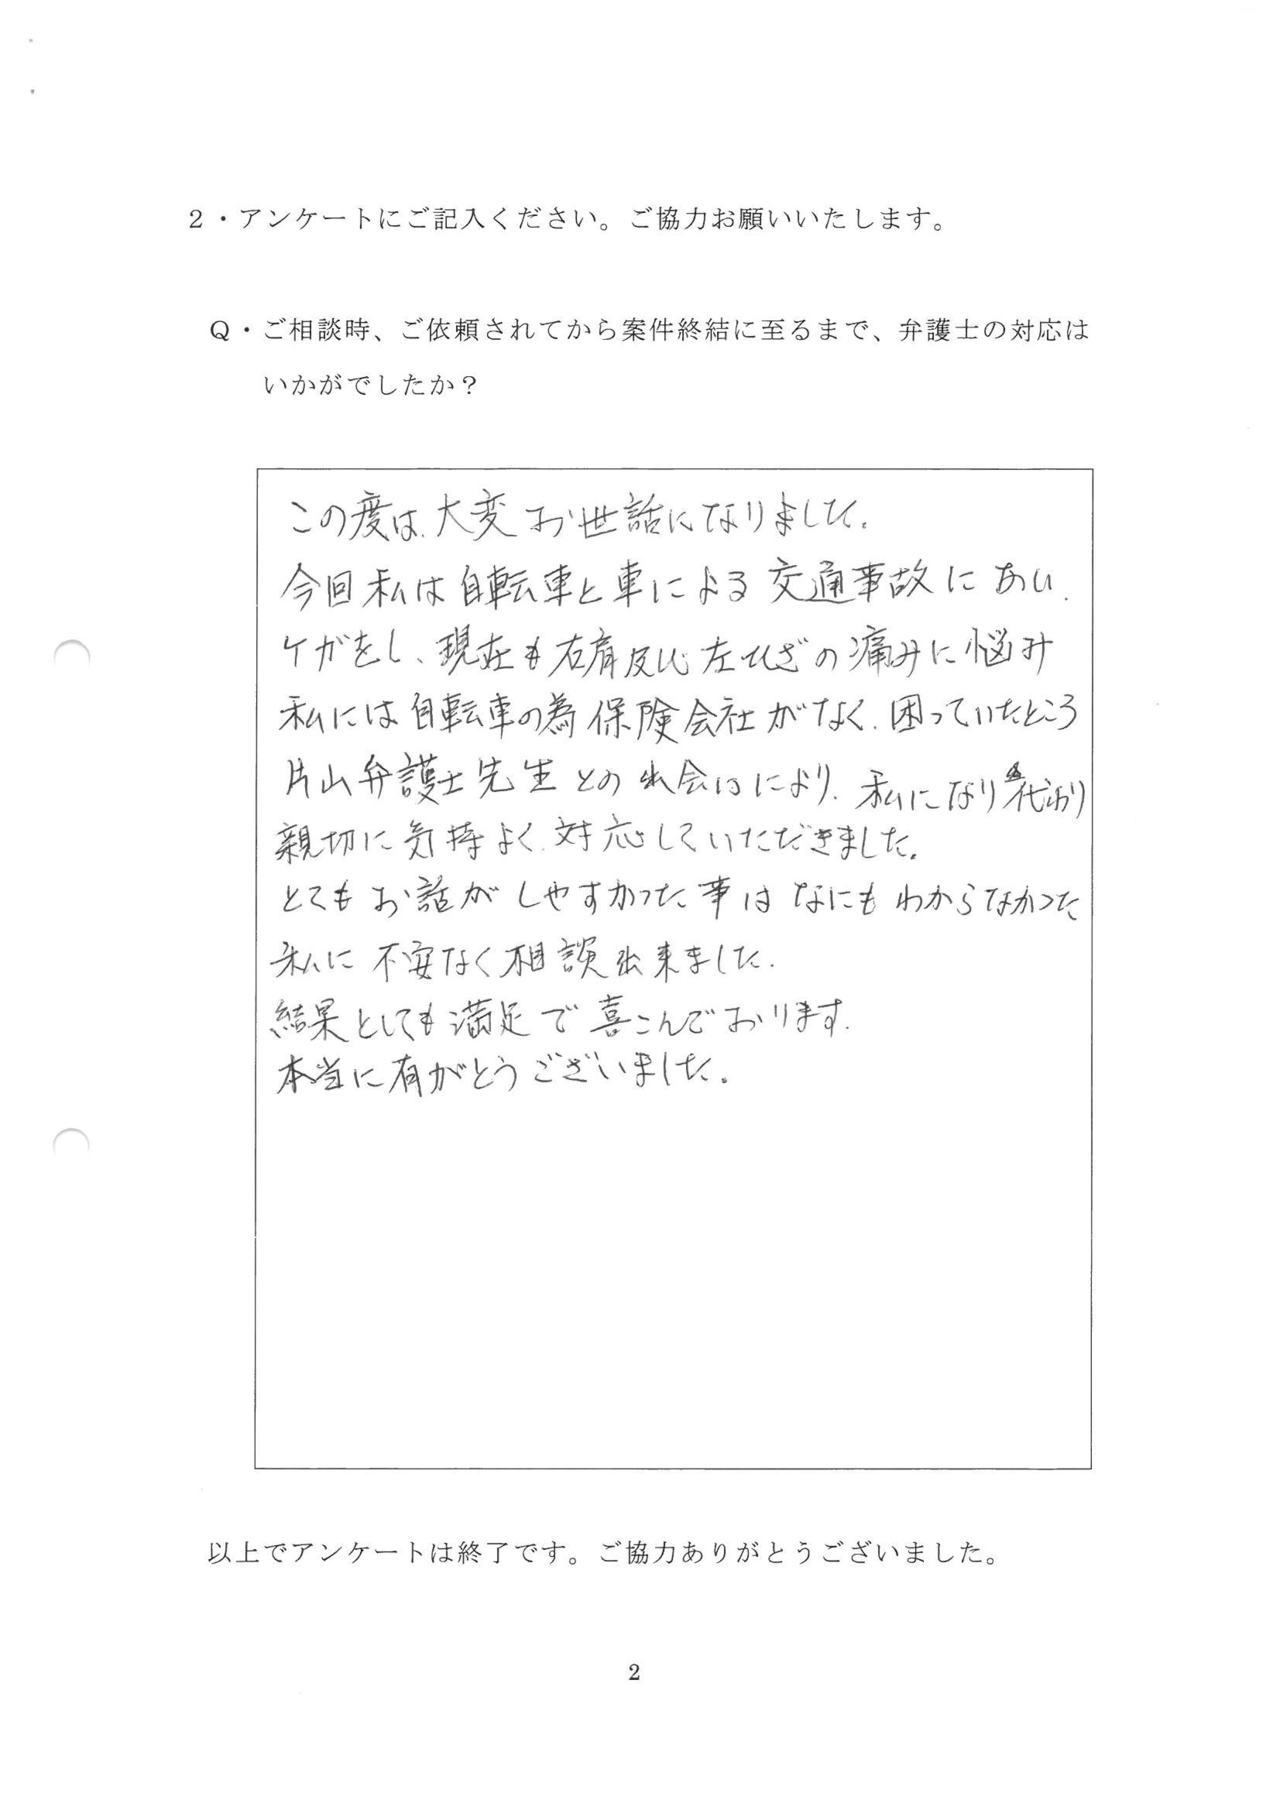 ２・アンケートにご記入ください。ご協力お願いいたします。
Ｑ・ご相談時、ご依頼されてから案件終結に至るまで、弁護士の対応は
いかがでしたか？
この度は、大変お世話になりました。
今回私は自転車と車による交通事故にあい、
ケガをし、現在も右肩及び左ひざの痛みに悩み
私には自転車の為保険会社がなく、困っていたところ
片山弁護士先生との出会いにより、私になり代わり
親切に気持よく、対応していただきました。
とてもお話がしやすかった事はなにもわからなかった
私に不安なく相談出来ました。
結果としても満足で喜こんでおります。
本当に有がとうございました。
以上でアンケートは終了です。ご協力ありがとうございました。
2